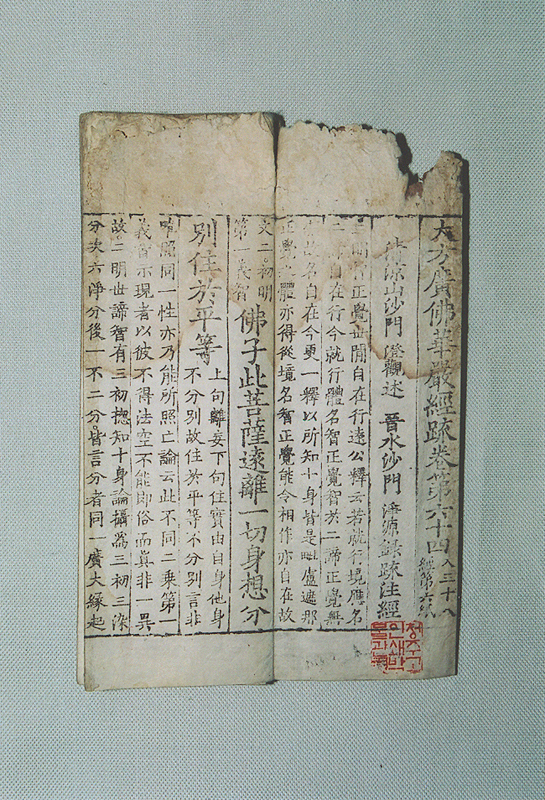 大方廣佛華嚴經䟽卷第六十四 入三十八 經第六
清涼山沙門 澄觀述 晉水沙門 淨源錄䟽注經
三明智正覺世間自在行遠公釋云若就行境應名
二諦自在行今就行體名智正覺智於二諦正覺無
故名自在今更一釋以所知十身皆是毗盧遮那
正覺之體亦得從境名智正覺能令相作亦自在故
文二初明
第一義智 佛子此菩薩遠離一切身想分
別住於平等 上句離妄下句住實由自身他身
不分別故住於平等不分別言非
唯照同一性亦乃能所照亡論云此不同二乘第一
義智示現者以彼不得法空不能即俗而真非一異
故二明世諦智有三初揔知十身論攝爲三初三染
分次六淨分後一不二分皆言分者同一廣大緣起
청주고
인쇄박
물관